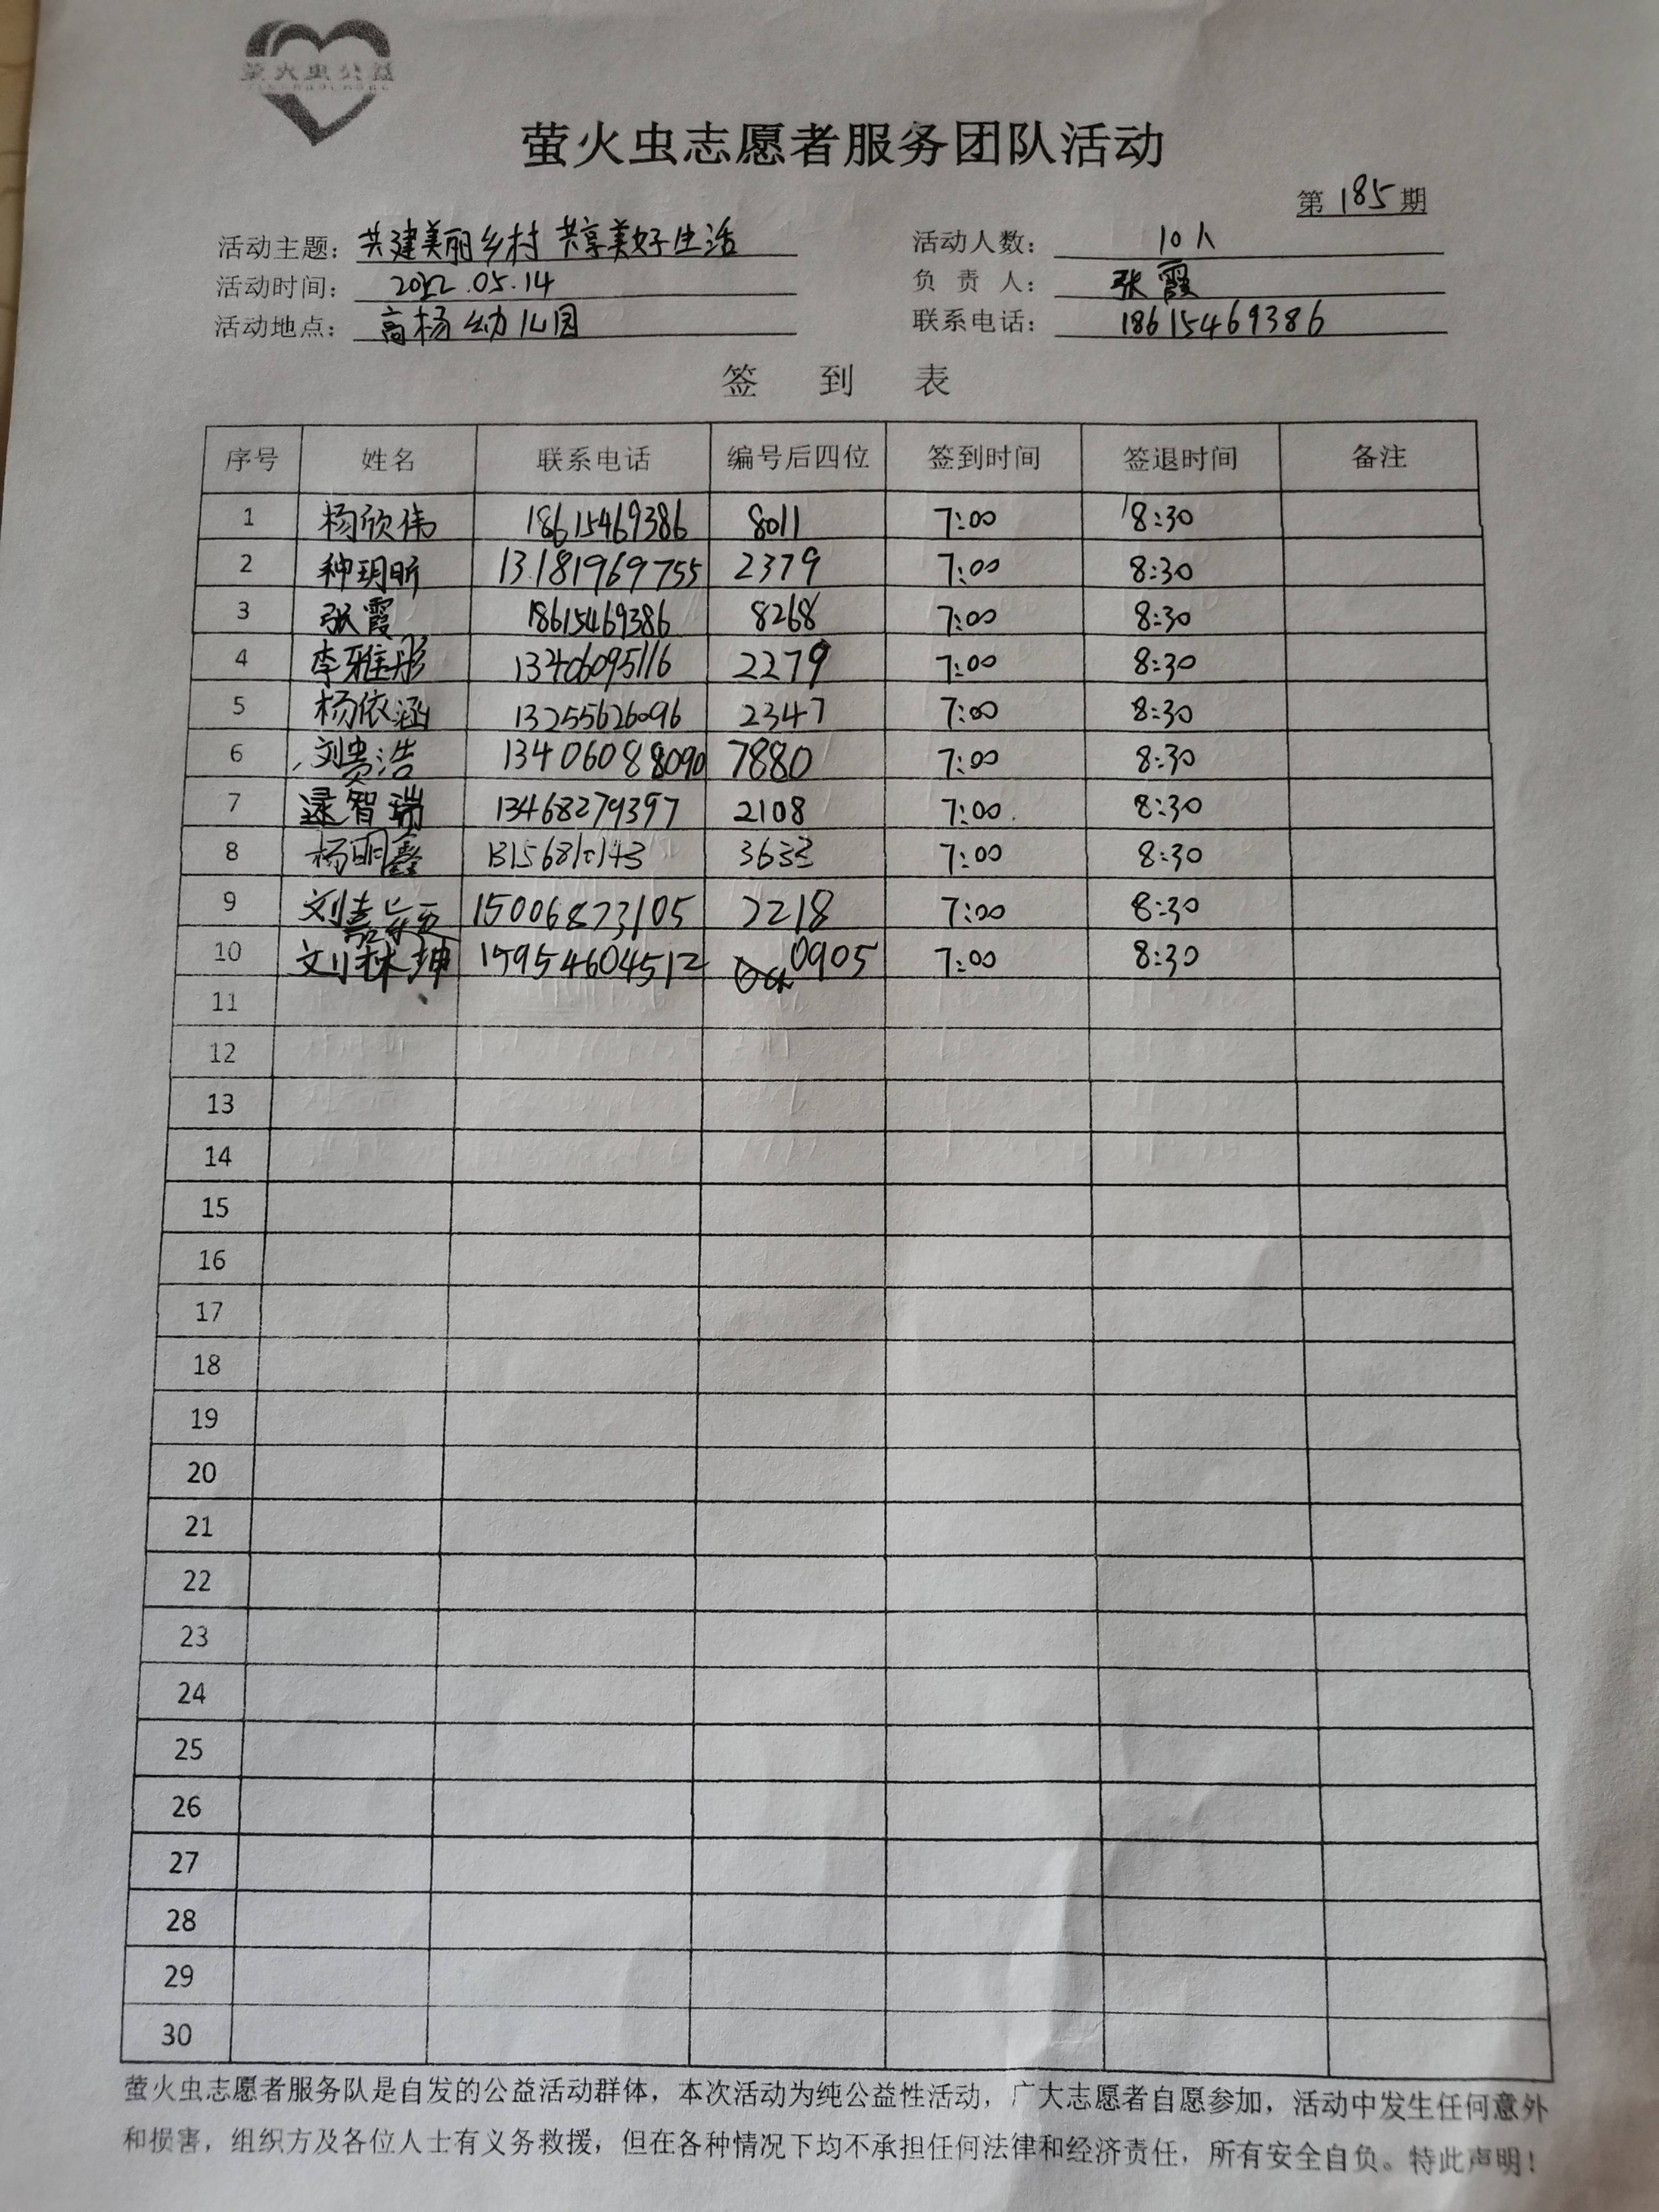 萤火虫公益
萤火虫志愿者服务团队活动
第 185 期
活动主题: 共建美丽乡村 共享美好生活 活动人数: 10人
活动时间: 2022.05.14 负责人: 张霞
活动地点: 高杨幼儿园 联系电话: 18615469386
签到表
序号 姓名 联系电话 编号后四位 签到时间 签退时间 备注
1 杨欣伟 18615469386 8011 7:00 8:30
2 种玥昕 13181969755 2379 7:00 8:30
3 张霞 18615469386 8268 7:00 8:30
4 李雅彤 13406095116 2279 7:00 8:30
5 杨依涵 13255626096 2347 7:00 8:30
6 刘贵浩 13406088090 7880 7:00 8:30
7 逯智瑞 13468279397 2108 7:00 8:30
8 杨明鑫 3633 7:00 8:30
9 15006873105 2218 7:00 8:30
10 刘林坤 15954604512 0905 7:00 8:30
11
12
13
14
15
16
17
18
19
20
21
22
23
24
25
26
27
28
29
30
萤火虫志愿者服务队是自发的公益活动群体，本次活动为纯公益性活动，广大志愿者自愿参加，活动中发生任何意外
和损害，组织方及各位人士有义务救援，但在各种情况下均不承担任何法律和经济责任，所有安全自负。特此声明！